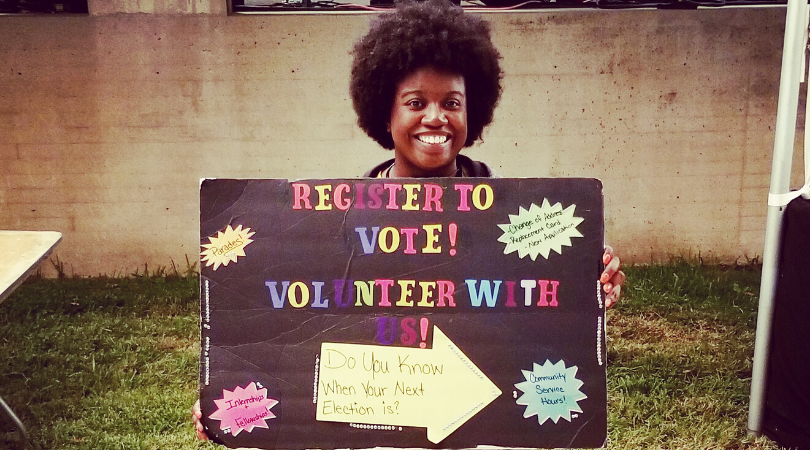 REGISTER TO
VOTE!
Parades!
-Change of Address
-Replacement Card
-New Application
VOLUNTEER WITH
US!
Do You Know
When Your Next
Election is?
Internships
+
Fellowships
Community
Service
Hours!